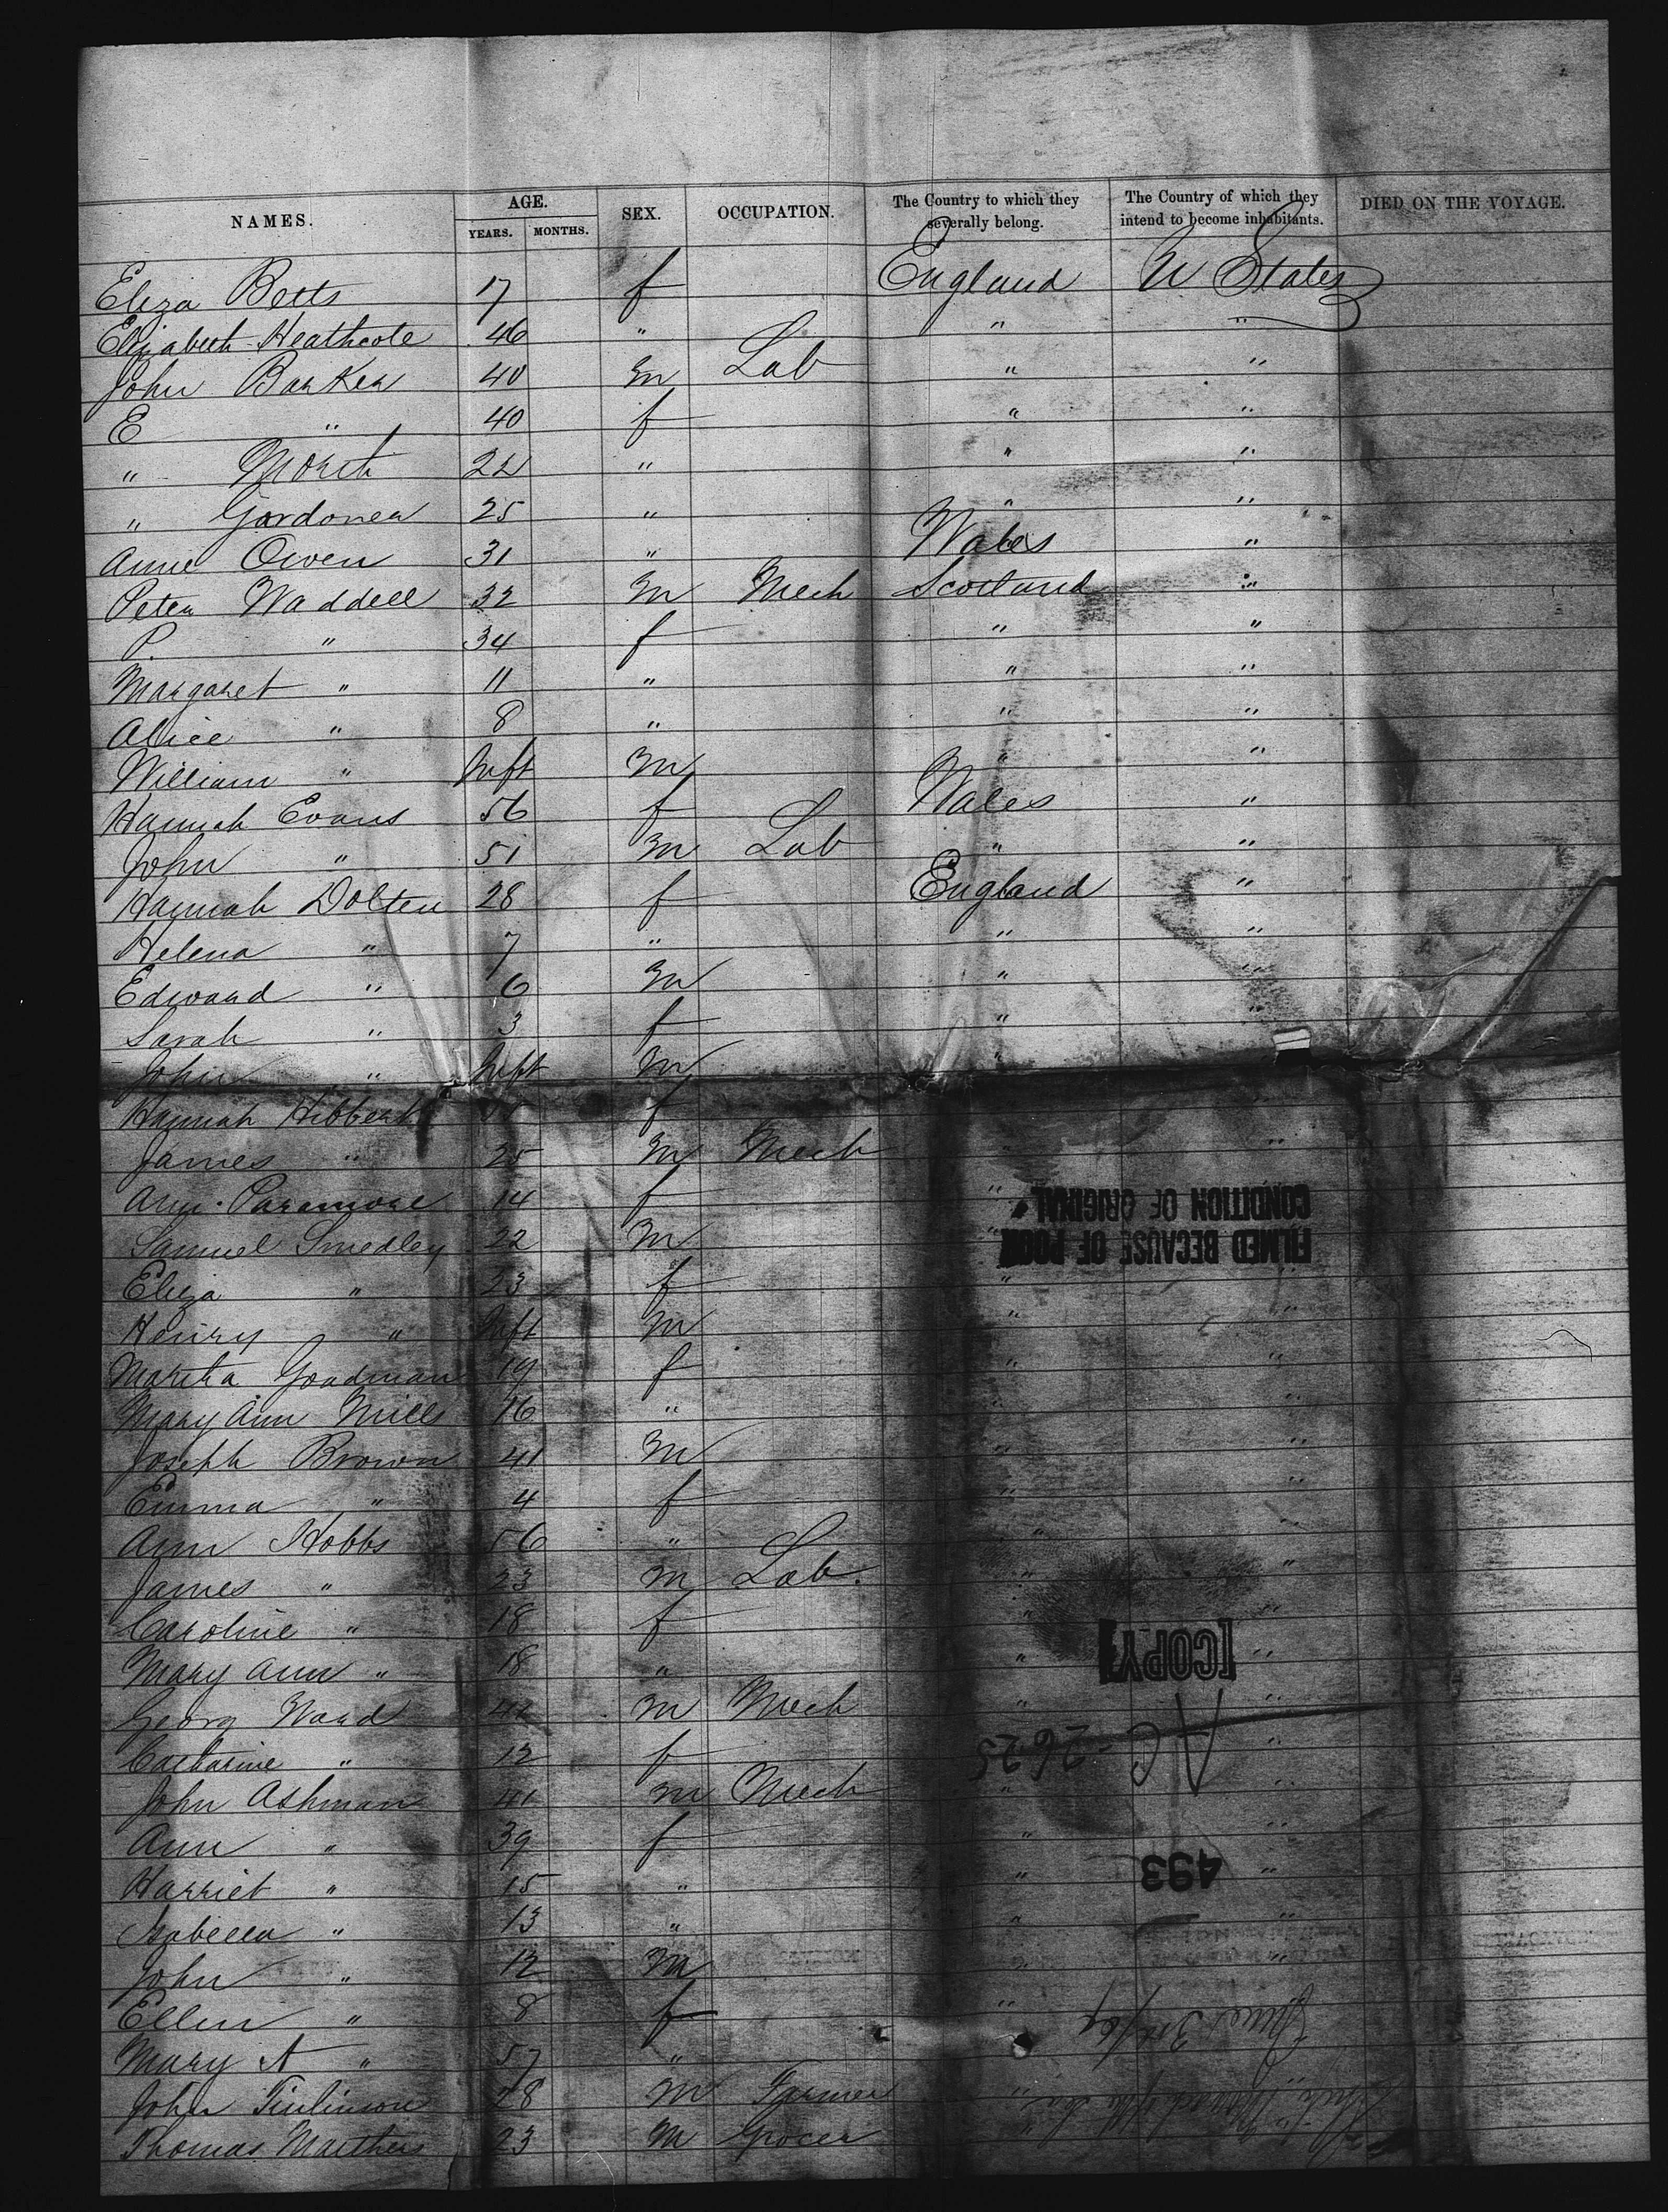 NAMES. AGE. SEX. OCCUPATION. The Country to which they severally belong. The Country of which they intend to become inhabitants. DIED ON THE VOYAGE.
YEARS. MONTHS.
Eliza Betts 17 f England U States
Elizabeth Heathcote 46 " " "
John Barker 40 m Lab " "
E " 40 f " "
" North 22 " " "
" Gordoner 25 " " "
Anne Owen 31 " Wales "
Peter Waddell 32 m Mech Scotland "
P. " 34 f " "
Margaret " 11 " " "
Alice " 8 " " "
William " Inft m " "
Hannah Evans 56 f Wales "
John " 51 m Lab " "
Hannah Dolten 28 f England "
Helena " 7 " " "
Edward " 6 m " "
Sarah " 3 f " "
John " Inft m "
Hannah Hibbert f
James " 25 m Mech "
Ann Paramore 14 f "
Samuel Smedley 22 m "
Eliza " 23 f "
Henry " Inft m " "
Martha Goodman 19 f " "
Mary Ann Mills 16 " " "
Joseph Brown 41 m " "
Emma " 4 f " "
Ann Hobbs 56 " " "
James " 23 m Lab. " "
Caroline " 18 f " "
Mary Ann " 18 " " "
Georg Ward m Mech " "
Catharine " 12 f "
John Ashman 41 m Mech " "
Ann " 39 f " "
Harriet " 15 " " "
Isabella " 13 " " "
John " 12 m " "
Ellen " 8 f "
Mary A " 57 "
John Tinlinson 28 m Farmer "
Thomas Matthews 23 m Grocer
FILMED BECAUSE OF POOR
CONDITION OF ORIGINAL
[COPY]
AC 2625
493
June 3rd/69